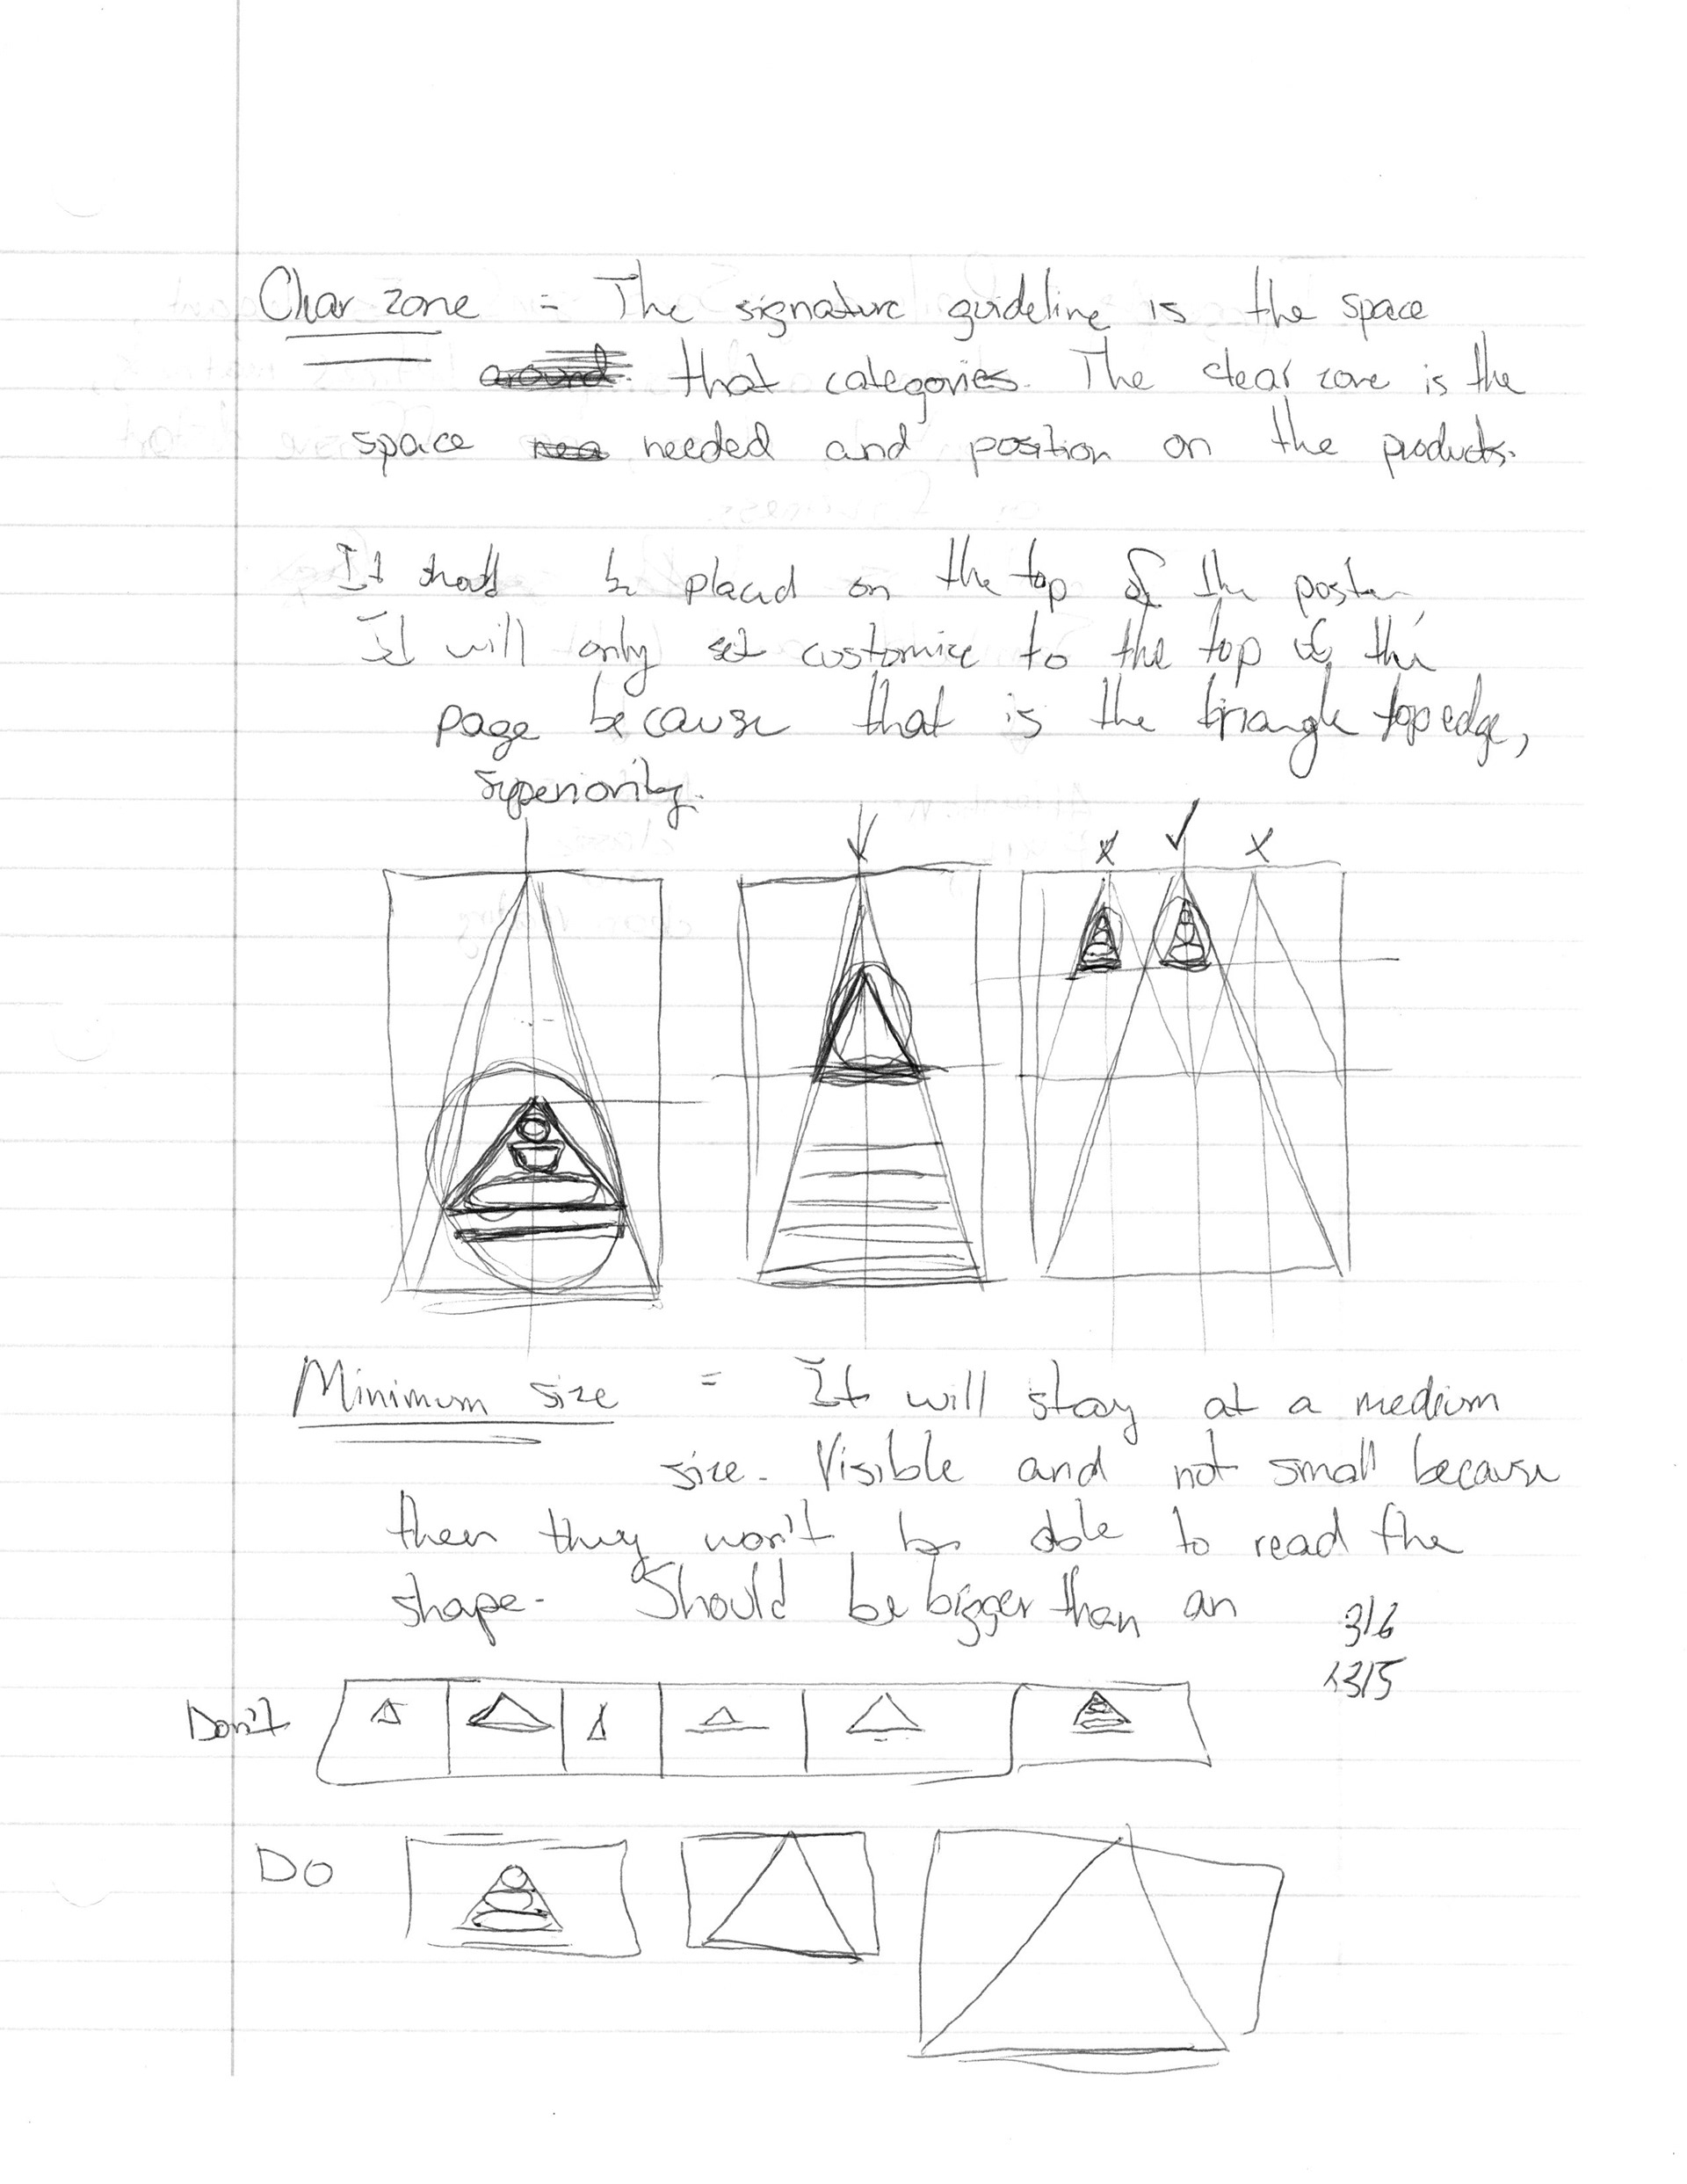 Clear zone = The signature guideline is the space
around that categories. The clear zone is the
space nee needed and position on the products.
It should be placed on the top of the poster,
It will only set customize to the top of the
page because that is the triangle top edge,
superiority.
x ✓ x
Minimum size = It will stay at a medium
size. Visible and not small because
then they won't be able to read the
shape. Should be bigger than an
316
1315
Don't
Do